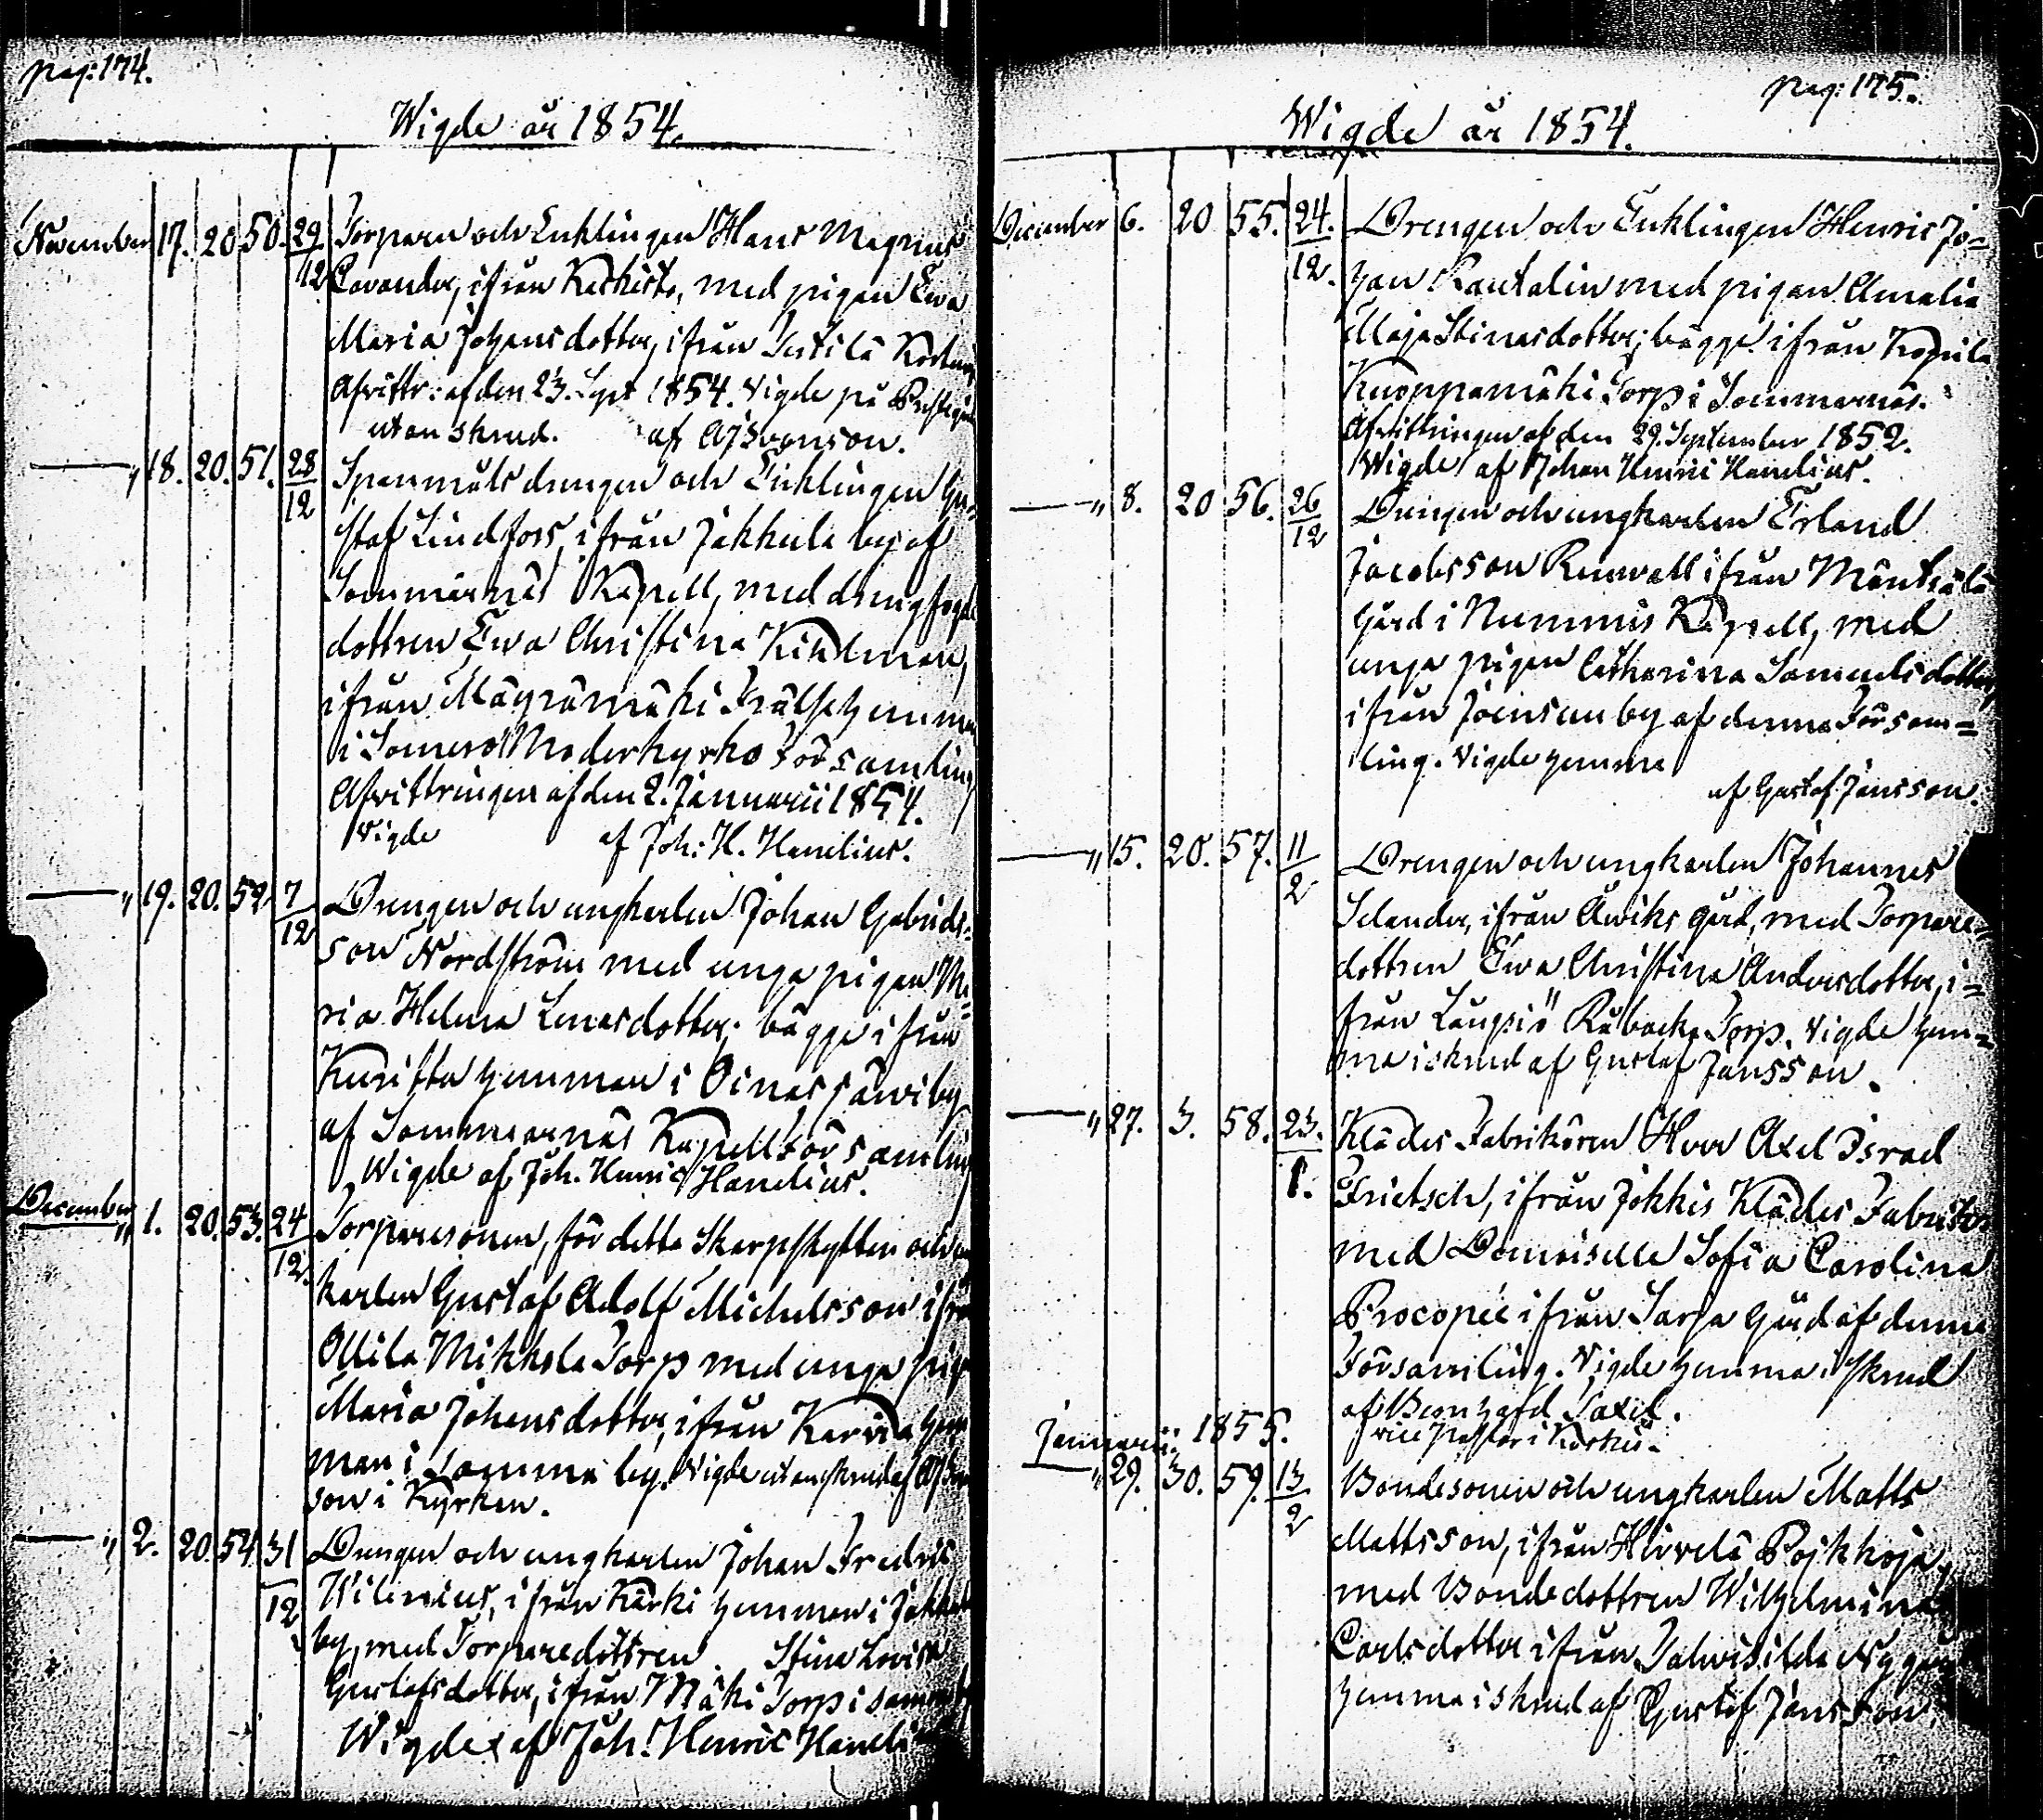 pag: 174.
Wigde år 1854.
November 17. 20 50. 29/12 Torparen och Enklingen Hans Magnus
Cavander, ifrån Kerkisto, med pigan Ewa
Maria Johansdotter, ifrån Intilä
Afvittr: af den 23. Sept 1854. Vigde på
utan skrud. af AJSvenson.
" 18. 20. 51. 28/12 Spanmåls drengen och Enklingen Gu-
staf Lindfors, ifrån Jakkula by af
Sommarnäs Kapell, med drengfogde
dottren Ewa Christina Kihlman,
ifrån Mäyrämäki Frälsehemman
i Somero Moderkyrko Församling
Afvittringen af den 2. Januarii 1854.
Vigde af Joh: H. Hanelius.
" 19. 20. 52 7/12 Drengen och ungkarlen Johan Gabriels-
son Nordström med unga pigan Ma-
ria Helena Lenasdotter; bägge ifrån
Kuritta hemman i Oinassawi by
af Sommarnäs Kapellförsamling
Wigde af Joh. Henric Hanelius.
December " 1. 20. 53. 24/12. Torparesonen, för detta Skarpskytten och
karlen Gustaf Adolf Michelsson ifrån
Ollila Mikkola Torp med unga pigan
Maria Johansdotter, ifrån Karvia hem
man i samma by. Vigde utan skrud af
son i Kyrkan.
" 2. 20. 54 31/12 Drengen och ungkarlen Johan Fredric
Wilenius, ifrån Kärki hemman i
by, med Torparedottren Stina Lovisa
Gustafsdotter, ifrån Mäki Torp i samma by
Wigde af Joh. Henric Hanelius
pag: 175.
Wigde år 1854.
December 6. 20 55. 24./12. Drengen och Enklingen Henric Jo-
han Rautelin med pigan Amalia
Maja Stinasdotter; bägge ifrån Kopila
Kuoppamäki Torp i Sommarnäs.
Afvittringen af den 29. September 1852.
Wigde af Johan Henric Hanelius.
" 8. 20 56. 26/12 Drengen och ungkarlen Erland
Jacobsson Renwall ifrån Mäntsälä
gård i Nummis Kapell, med
unga pigan Catharina Samuelsdotter,
ifrån Joensuu by af denna Försam-
ling. Vigde hemma
af Gustaf Jansson.
" 15. 20. 57. 11/2 Drengen och ungkarlen Johannes
Selander, ifrån Åwiks gård, med Torpare-
dottren Ewa Christina Andersdotter, i-
från Laupiö Råbacka Torp. Vigde hem-
ma i skrud af Gustaf Jansson.
" 27. 3. 58. 23./1. Klädes Fabrikören Herr Axel Israel
Frietsch, ifrån Jokkis Klädes Fabrik
med Demoiselle Sofia Carolina
Procopeé ifrån Sarja gård af denna
Församling. Vigde hemma i skrud
af Bernhard Taxel.
vice Pastor i
Januarii 1855.
" 29. 30. 59. 13/2 Bondesonen och ungkarlen Matts
Mattsson, ifrån Hirvelä Pojkkoja,
med Bondedottren Wilhelmina
Carlsdotter ifrån Talvisilda
hemma i skrud af Gustaf Jansson.